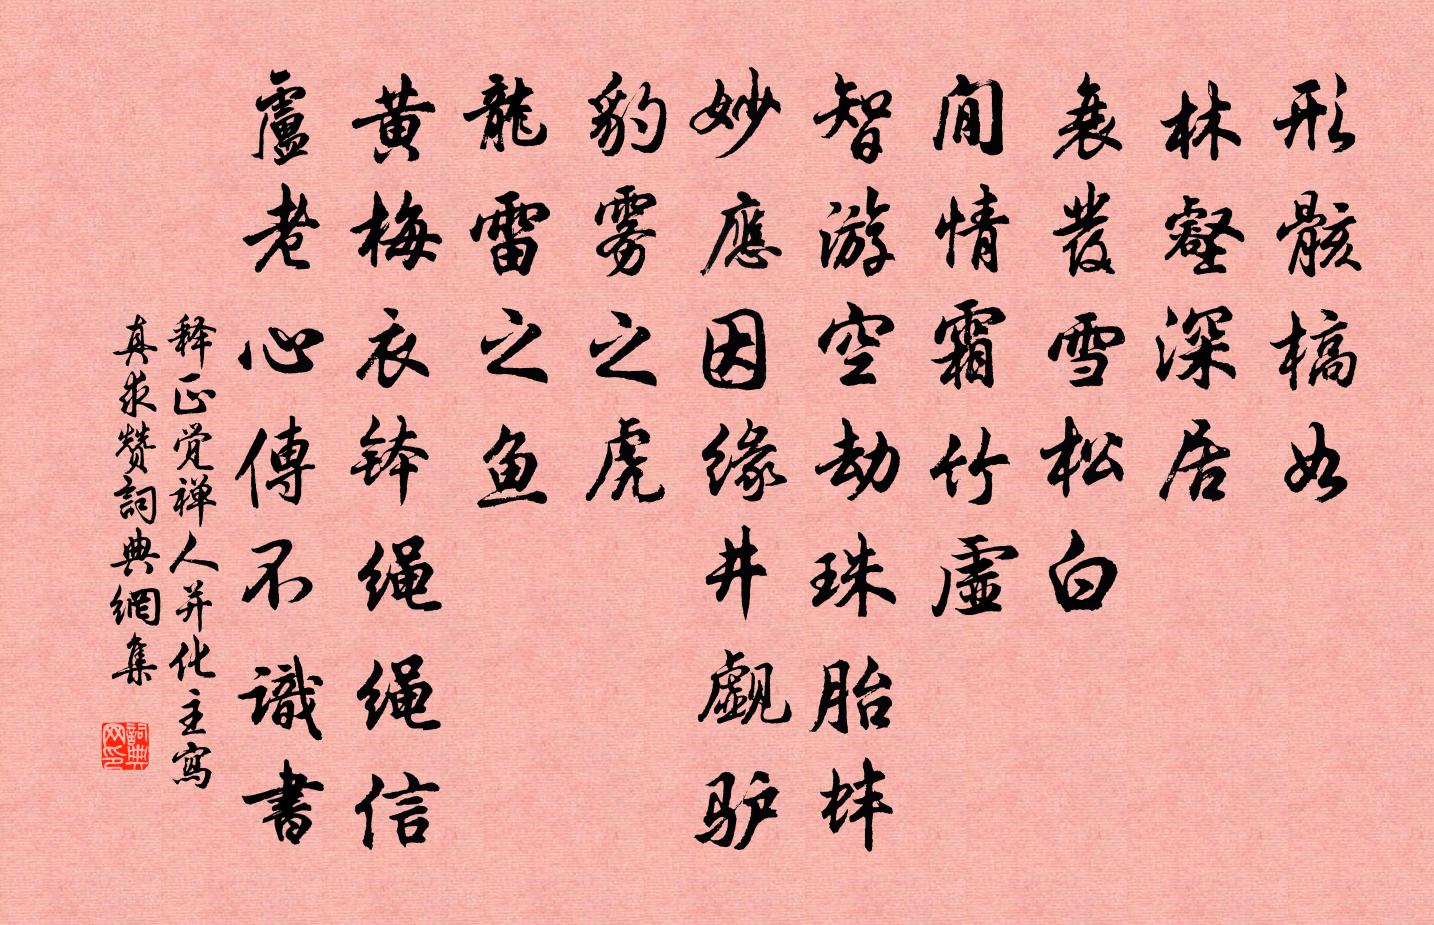 形骸槁如
林壑深居
衰發雪松白
閒情霜竹虛
智游空劫珠胎蚌
妙應因缘井覷驴
豹雾之虎
龍雷之鱼
黄梅衣钵绳绳信
盧老心傳不識書
释正觉禅人并化主寫
真求赞詞典網集
詞典网印